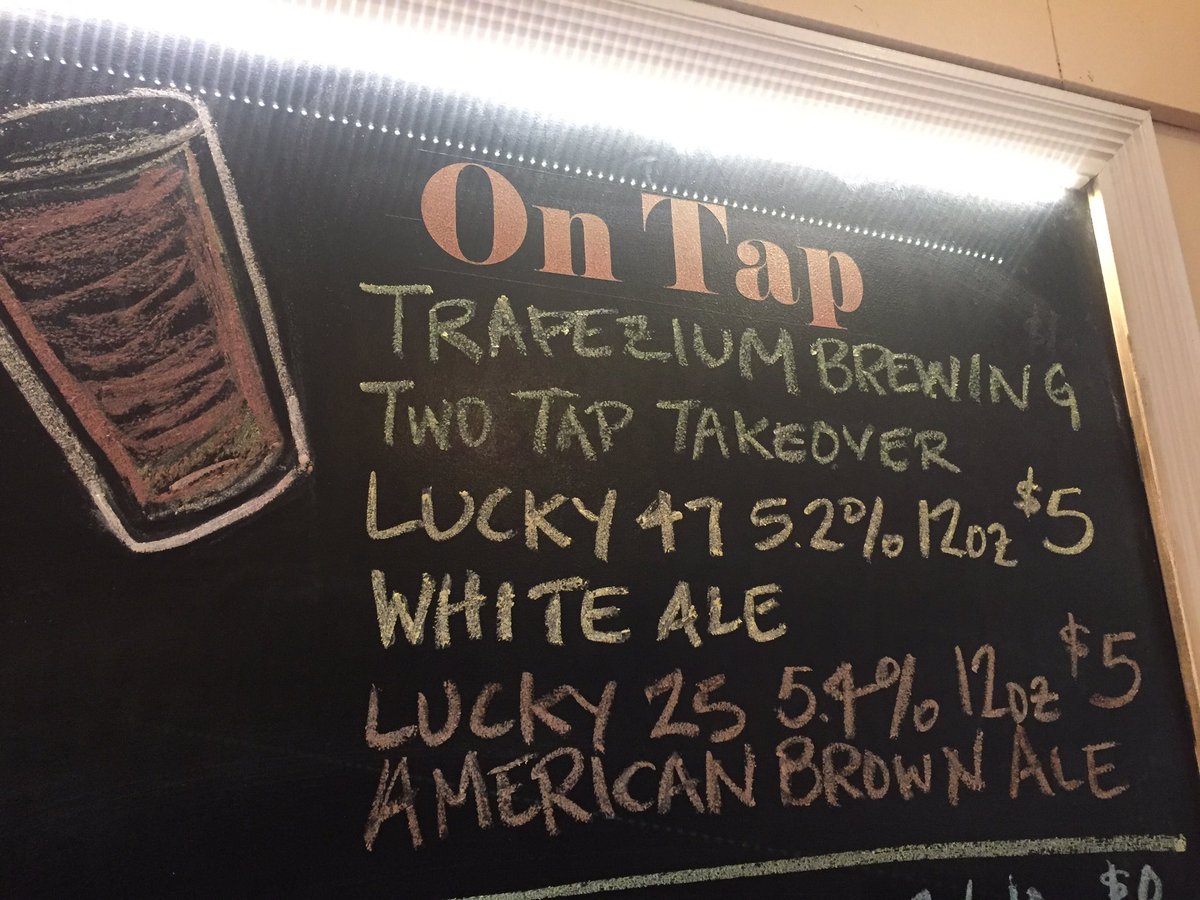 On Tap
TRAPEZIUM BREWING
TWO TAP TAKEOVER
LUCKY 47 5.2% 12oz $5
WHITE ALE
LUCKY 25 5.4% 12oz $5
AMERICAN BROWN ALE